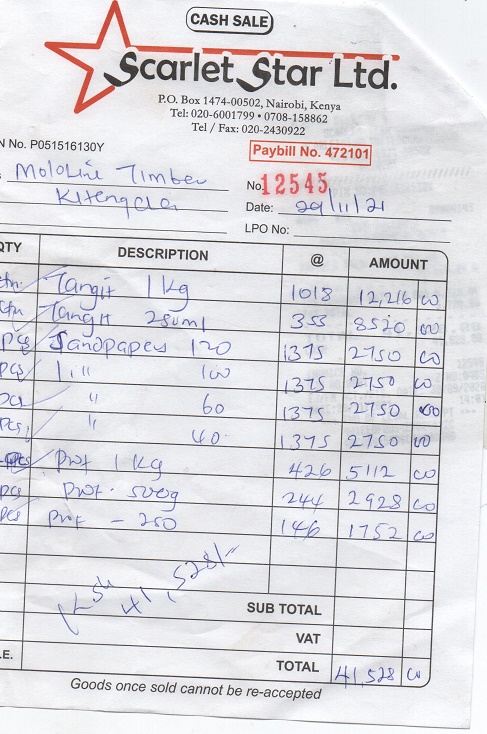 CASH SALE
Scarlet Star Ltd.
P.O. Box 1474-00502, Nairobi, Kenya
Tel: 020-6001799 • 0708-158862
Tel / Fax: 020-2430922
N No. P051516130Y
Paybill No. 472101
Timber
No. 12545
Kitengela
Date: 29/11/21
LPO No:
QTY DESCRIPTION @ AMOUNT
ctn Tangit 1 kg 1018 12,216 00
ctn Tangit 250ml 355 8520 00
pcs Sandpapers 120 1375 2750 00
pcs " " 100 1375 2750 00
pcs " 60 1375 2750 00
pcs " 40 1375 2750 00
pcs 1 kg 426 5112 00
pcs 500g 244 2928 00
pcs - 250 146 1752 00
Ksh 41,528/=
SUB TOTAL
VAT
.E. TOTAL 41,528 00
Goods once sold cannot be re-accepted